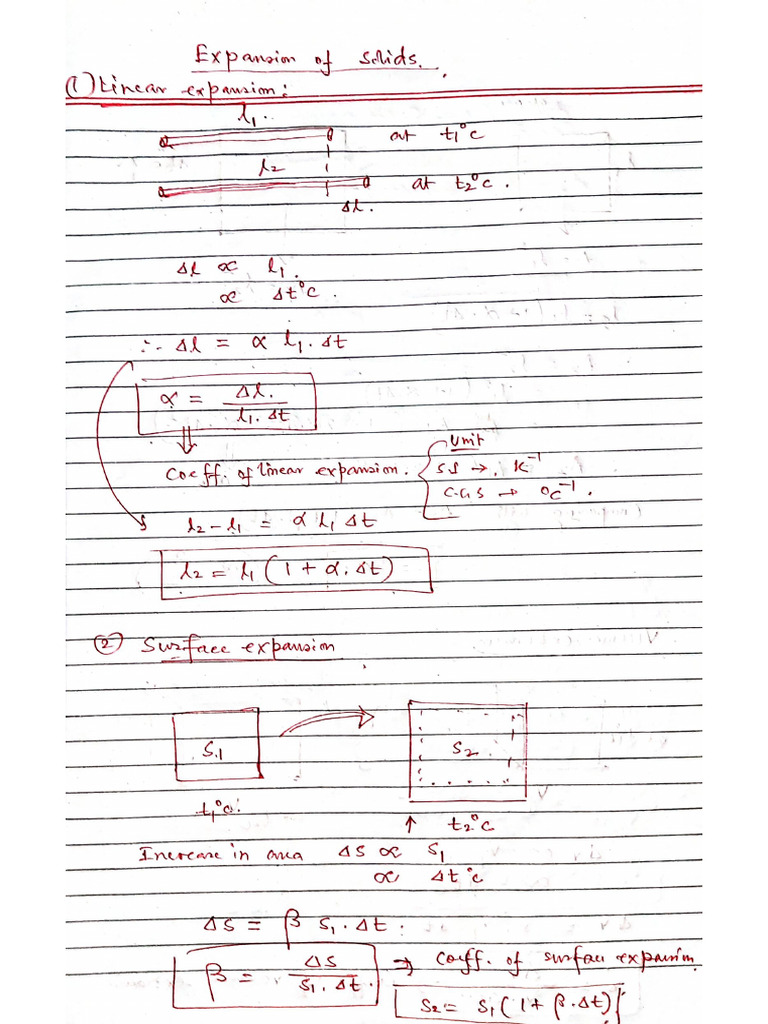 Expansion of solids.
(1) Linear expansion:
l₁.
at t₁°c
l₂
at t₂°c.
Δl.
Δl ∝ l₁.
∝ Δt°c.
∴ Δl = α l₁. Δt
α = Δl. / l₁. Δt
Unit
Coeff. of linear expansion. { S.I → K⁻¹
C.G.S → °C⁻¹.
l₂ - l₁ = α l₁ Δt
l₂ = l₁ (1 + α. Δt)
(2) Surface expansion
S₁
S₂
t₁°c.
↑ t₂°c
Increase in area ΔS ∝ S₁
∝ Δt°c
ΔS = β S₁. Δt.
β = ΔS / S₁. Δt. ⇒ Coeff. of surface expansion
S₂ = S₁ (1 + β. Δt)